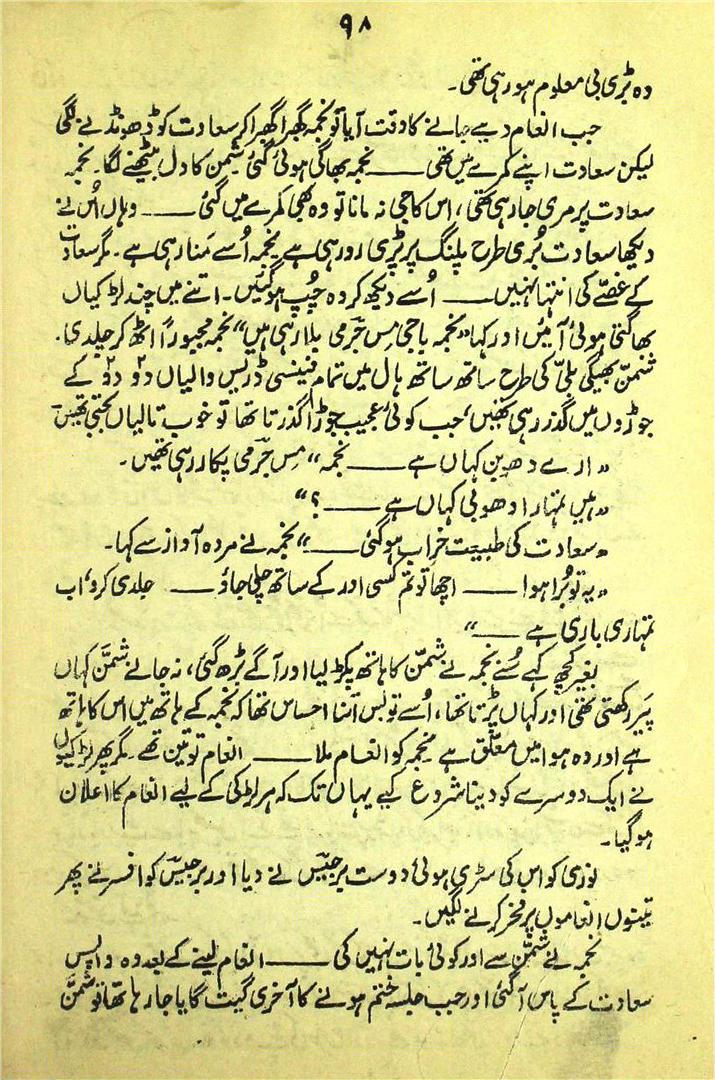 ۹۸
وہ بڑی بی معلوم ہو رہی تھی۔
جب انعام دیے جانے کا وقت آیا تو نجمہ گھبرا گھبرا کر سعادت کو ڈھونڈنے لگی
لیکن سعادت اپنے کمرے میں تھی ــــــ نجمہ بھاگی ہوئی گئی شمن کا دل بیٹھنے لگا۔ نجمہ
سعادت پر مری جا رہی تھی، اس کا جی نہ مانا تو وہ بھی کمرے میں گئی ــــــ وہاں اُس نے
دیکھا سعادت بُری طرح پلنگ پر پڑی رو رہی ہے نجمہ اُسے مَنا رہی ہے۔ مگر سعادت
کے غصّے کی انتہا نہیں ــــــ اُسے دیکھ کر وہ چُپ ہو گئیں۔ اتنے میں چند لڑکیاں
بھاگتی ہوئی آئیں اور کہا “نجمہ باجی مِس جَرمی بلا رہی ہیں” نجمہ مجبوراً اٹھ کر چلدی۔
شمنّ بھیگی بلّی کی طرح ساتھ ساتھ ہال میں تمام فینسی ڈریس والیاں دو دو کے
جوڑوں میں گذر رہی تھیں، جب کوئی عجیب جوڑا گذرتا تھا تو خوب تالیاں بجتی تھیں
“ارے دھوبن کہاں ہے ــــــ نجمہ” مِس جَرمی پکار رہی تھیں۔
“ہیں تمہارا دھوبی کہاں ہے ــــــ ؟”
“سعادت کی طبیعت خراب ہو گئی ــــــ” نجمہ نے مردہ آواز سے کہا۔
“یہ تو بُرا ہوا ــــــ اچھا تو تم کسی اور کے ساتھ چلی جاؤ ــــــ جلدی کرو، اب
تمہاری باری ہے ــــــ”
بغیر کچھ کہے سُنے نجمہ نے شمنّ کا ہاتھ پکڑ لیا اور آگے بڑھ گئی، نہ جانے شمنّ کہاں
پَیر رکھتی تھی اور کہاں پڑتا تھا، اُسے تو بس اتنا احساس تھا کہ نجمہ کے ہاتھ میں اس کا ہاتھ
ہے اور وہ ہوا میں معلّق ہے نجمہ کو انعام ملا ــــــ انعام تو تین تھے۔ مگر پھر لڑکیوں
نے ایک دوسرے کو دینا شروع کیے یہاں تک کہ ہر لڑکی کے لیے انعام کا اعلان
ہو گیا۔
نوری کو اس کی سڑی ہوئی دوست برجیس نے دیا اور برجیس کو افسر نے پھر
تینوں انعاموں پر فخر کرنے لگیں۔
نجمہ نے شمنّ سے اور کوئی بات نہیں کی ــــــ انعام لینے کے بعد وہ واپس
سعادت کے پاس آ گئی اور جب جلسہ ختم ہونے کا آخری گیت گایا جا رہا تھا تو شمنّ